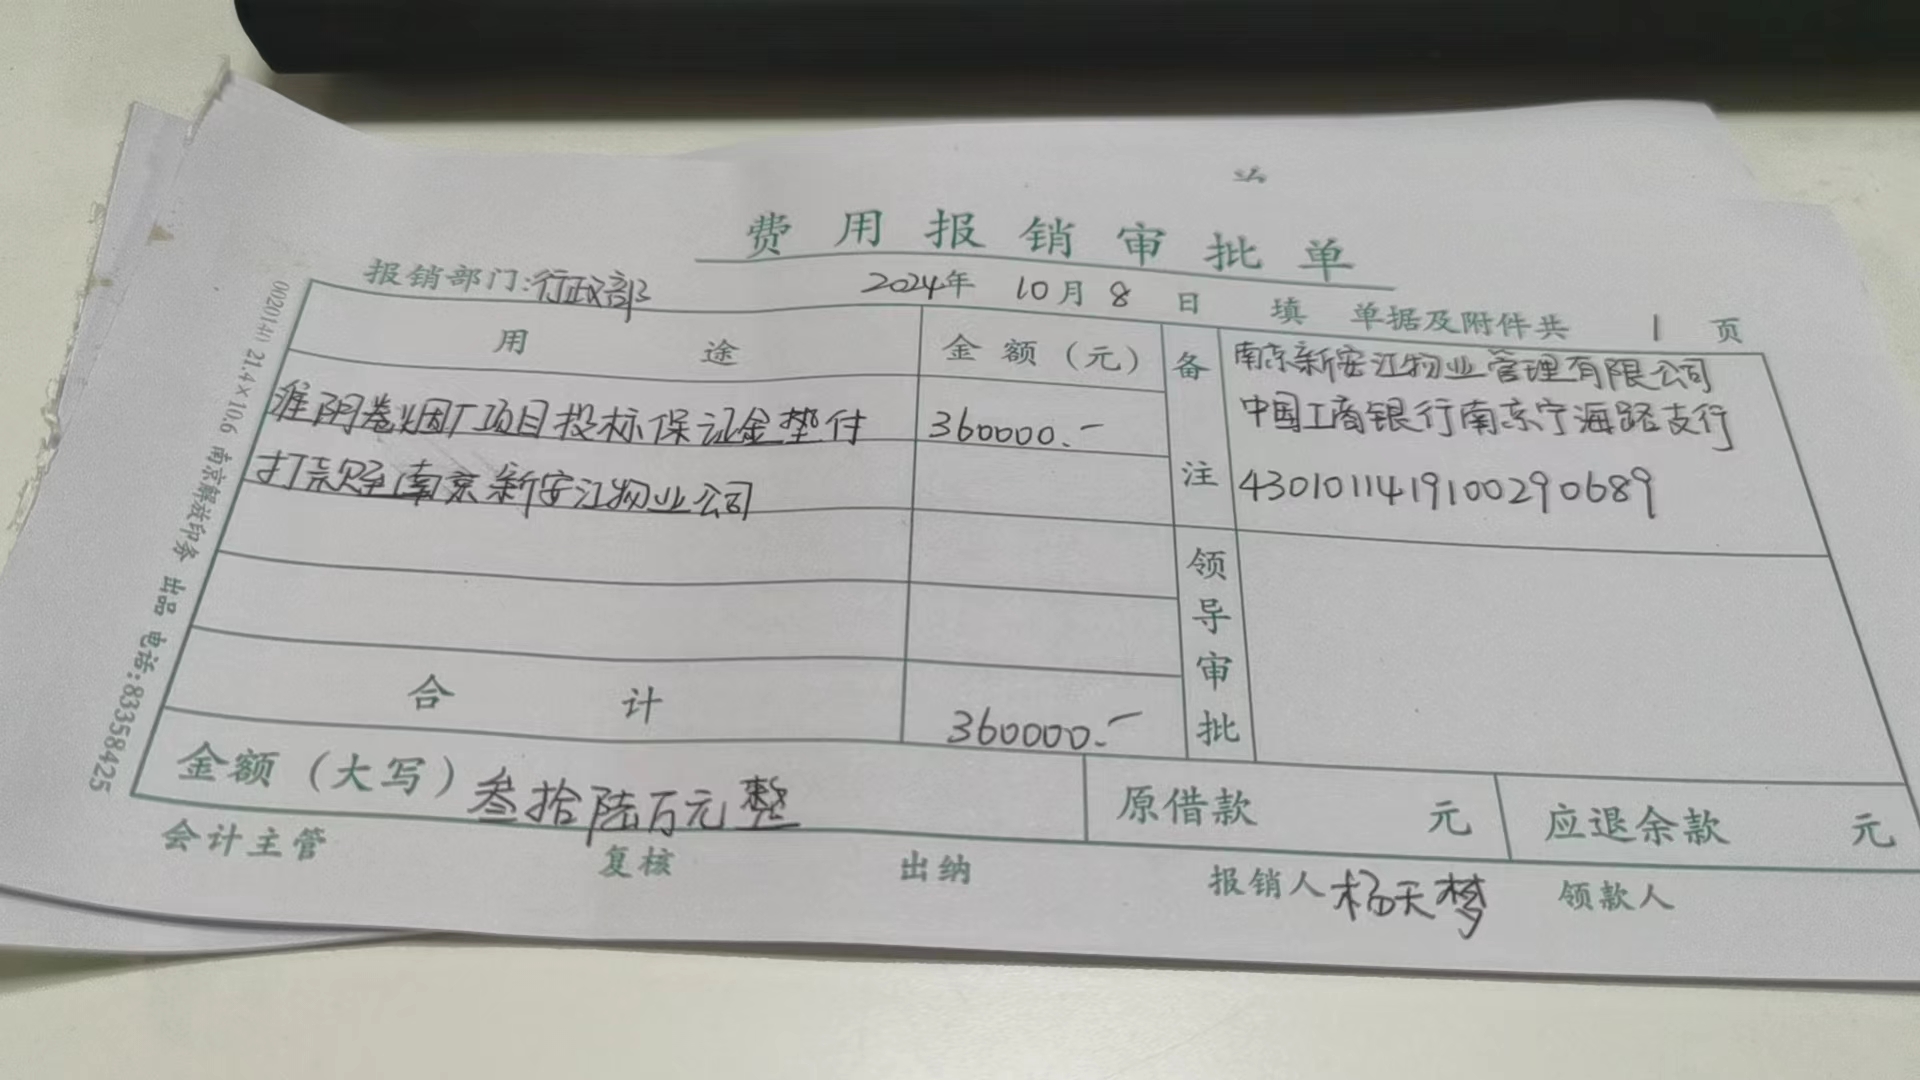 费用报销审批单
报销部门:行政部 2024年 10月 8日 填 单据及附件共 1 页
用途 金额(元) 备注 南京新安江物业管理有限公司
中国工商银行南京宁海路支行
4301011419100290689
淮阴卷烟厂项目投标保证金垫付 360000.-
打款至南京新安江物业公司
领导审批
合计 360000.-
金额(大写)叁拾陆万元整 原借款 元 应退余款 元
会计主管 复核 出纳 报销人 杨天梦 领款人
21.4×10.6 南京解放印务 出品 电话:83358425